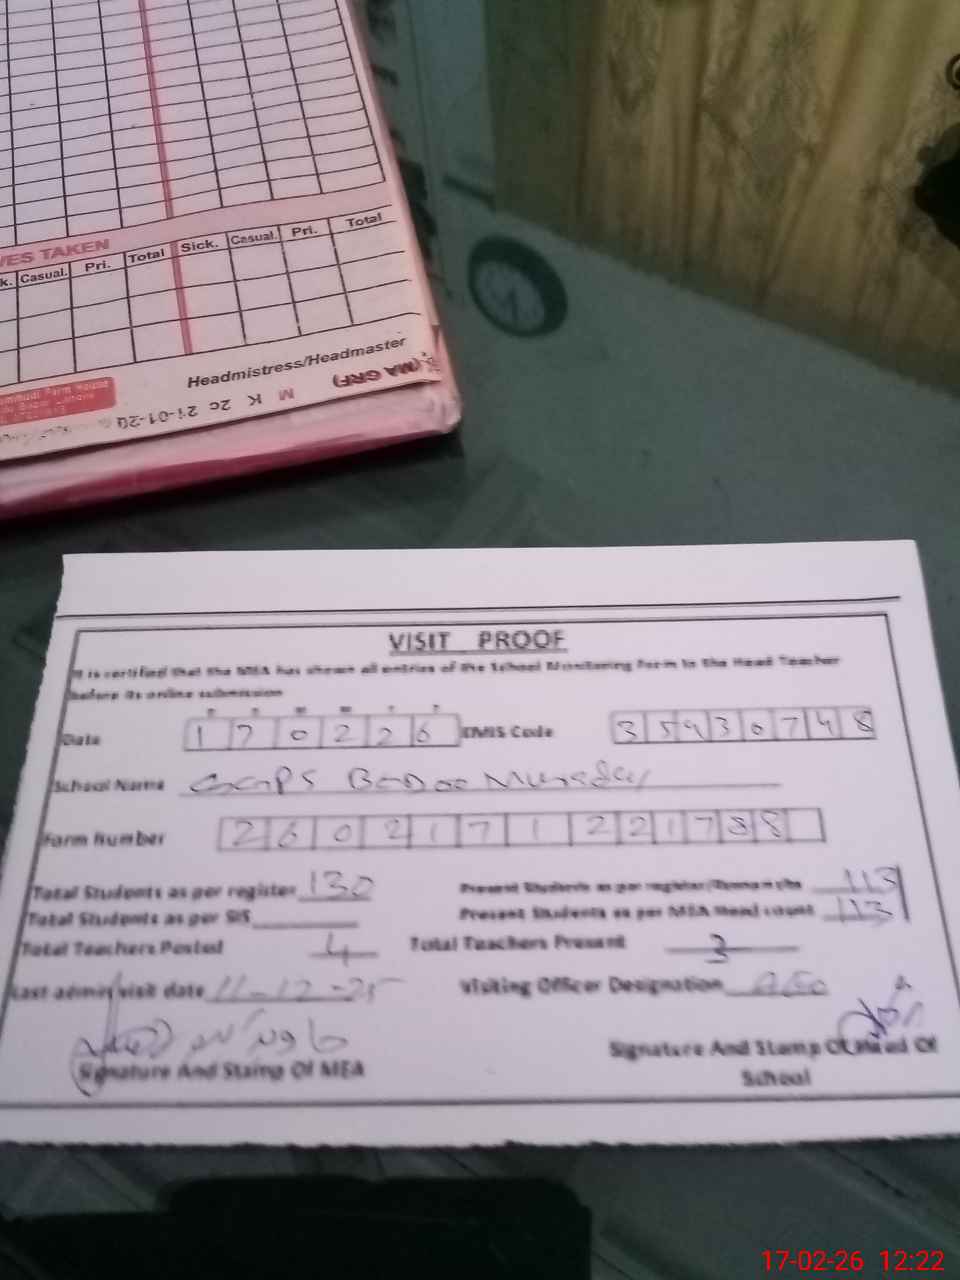 VES TAKEN
k. Casual. Pri. Total Sick. Casual. Pri. Total
Headmistress/Headmaster
(MA GRF)
M K 2c 21-01-20
VISIT PROOF
It is certified that the MEA has shown all entries of the School Monitoring Form to the Head Teacher
before its online submission
Date 1 7 0 2 2 6 EMIS Code 3 5 4 3 0 7 4 8
School Name GGPS
Form Number 2 6 0 2 1 7 1 2 2 1 7 3 8
Total Students as per register 130 Present Students as per register 113
Total Students as per SIS Present Students as per MEA Head count 113
Total Teachers Posted 4 Total Teachers Present 3
Last admin visit date 11-12-25 Visiting Officer Designation AEO
Signature And Stamp Of MEA
Signature And Stamp Of Head Of
School
17-02-26 12:22